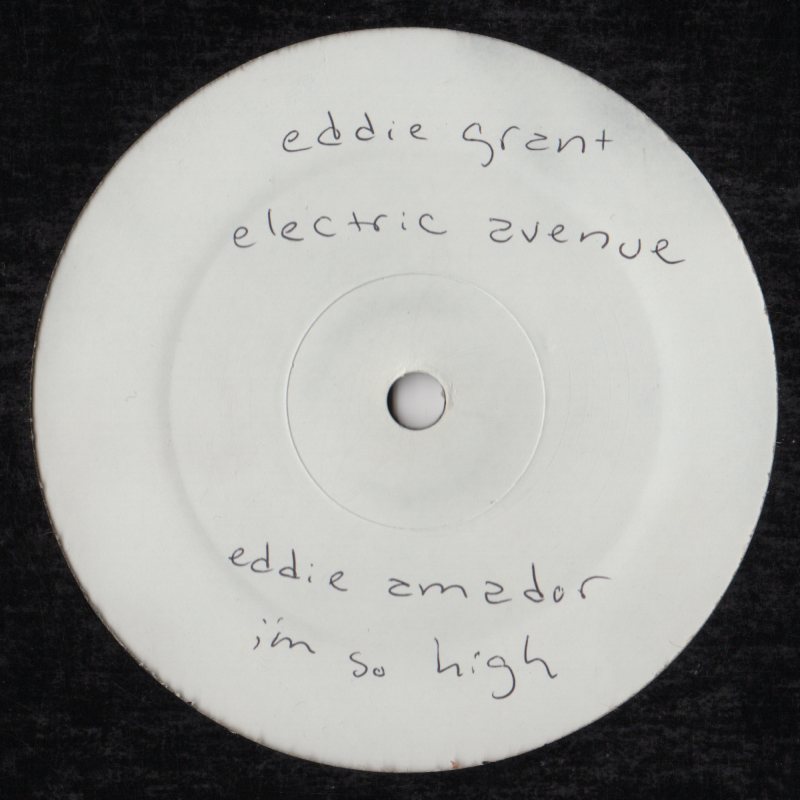 eddie grant
electric avenue
eddie amador
i'm so high